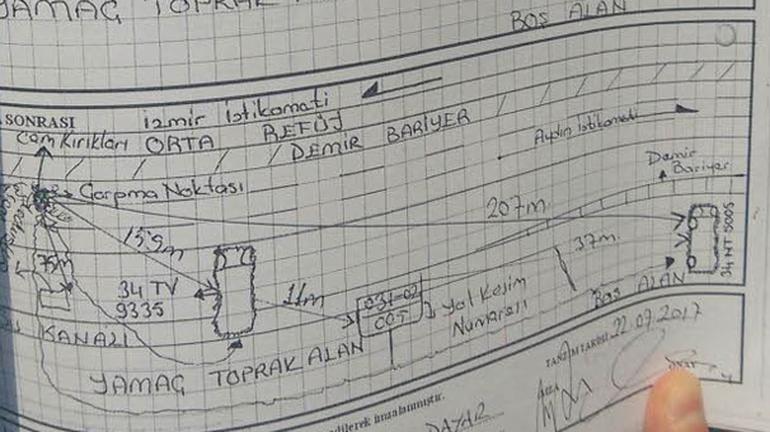 YAMAG TOPRAK
BOŞ ALAN
SONRASI
izmir istikameti
Cam Kırıkları
ORTA REFÜJ
DEMİR BARİYER
Aydın istikameti
Demir
Bariyer
Çarpma Noktası
207m
159m
75m
34 TV
9335
11m
031-02
005
Yol Kesim
Numarası
37m
34 NT 5005
BOŞ ALAN
KANALI
YAMAG TOPRAK ALAN
TANZİM TARİHİ 22.07.2017
dilerek imzalanmıştır.